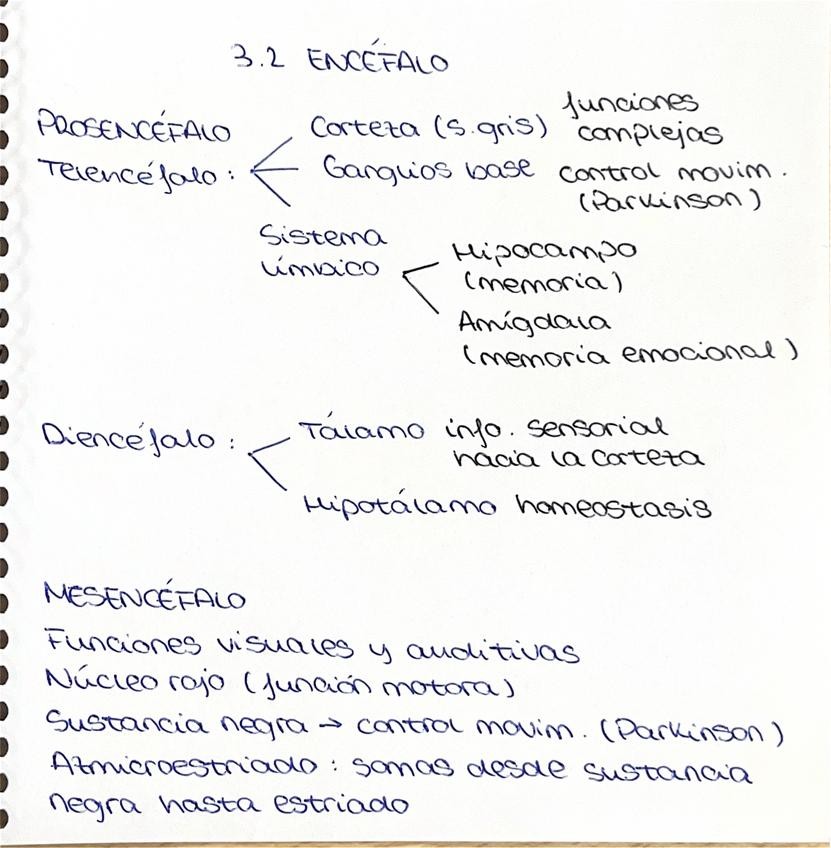 3.2 ENCÉFALO
PROSENCÉFALO
Telencéfalo:
Corteza (s. gris) funciones complejas
Ganglios base control movim. (Parkinson)
Sistema
límbico
Hipocampo
(memoria)
Amígdala
(memoria emocional)
Diencéfalo:
Tálamo info. sensorial
hacia la corteza
Hipotálamo homeostasis
MESENCÉFALO
Funciones visuales y auditivas
Núcleo rojo (función motora)
Sustancia negra → control movim. (Parkinson)
: somas desde sustancia
negra hasta estriado